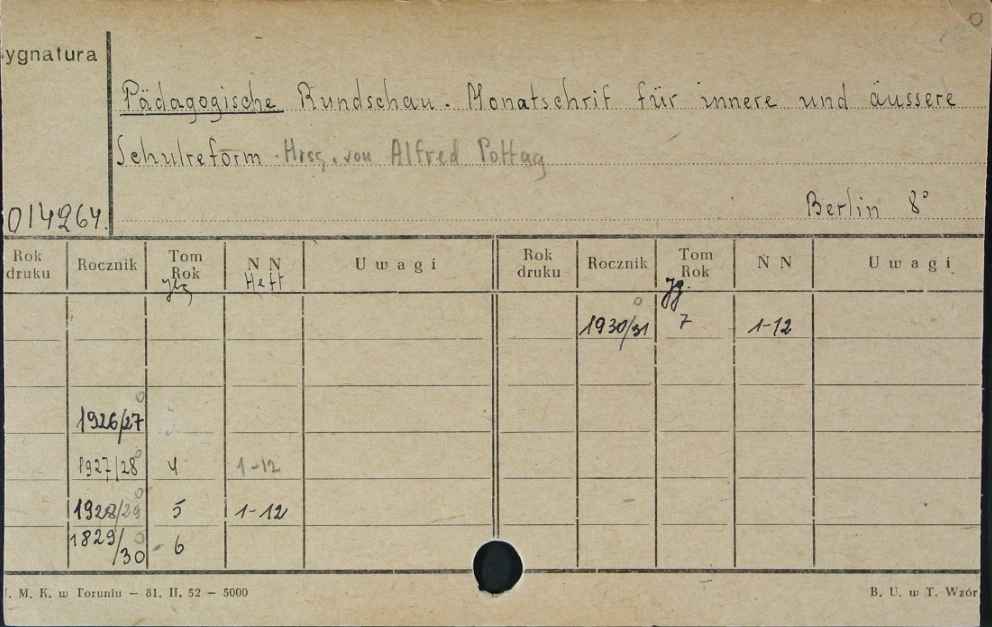 ygnatura
Pädagogische Rundschau. Monatschrift für innere und äussere
Schulreform. Hrsg. von Alfred Pottag
014264.
Berlin 8°
Rok druku Rocznik Tom Rok Jg N N Heft Uwagi Rok druku Rocznik Tom Rok Jg. N N Uwagi
1930/31 7 1-12
1926/27
1927/28 4 1-12
1928/29 5 1-12
1829/30 6
M. K. w Toruniu — 81. II. 52 — 5000
B. U. w T. Wzór